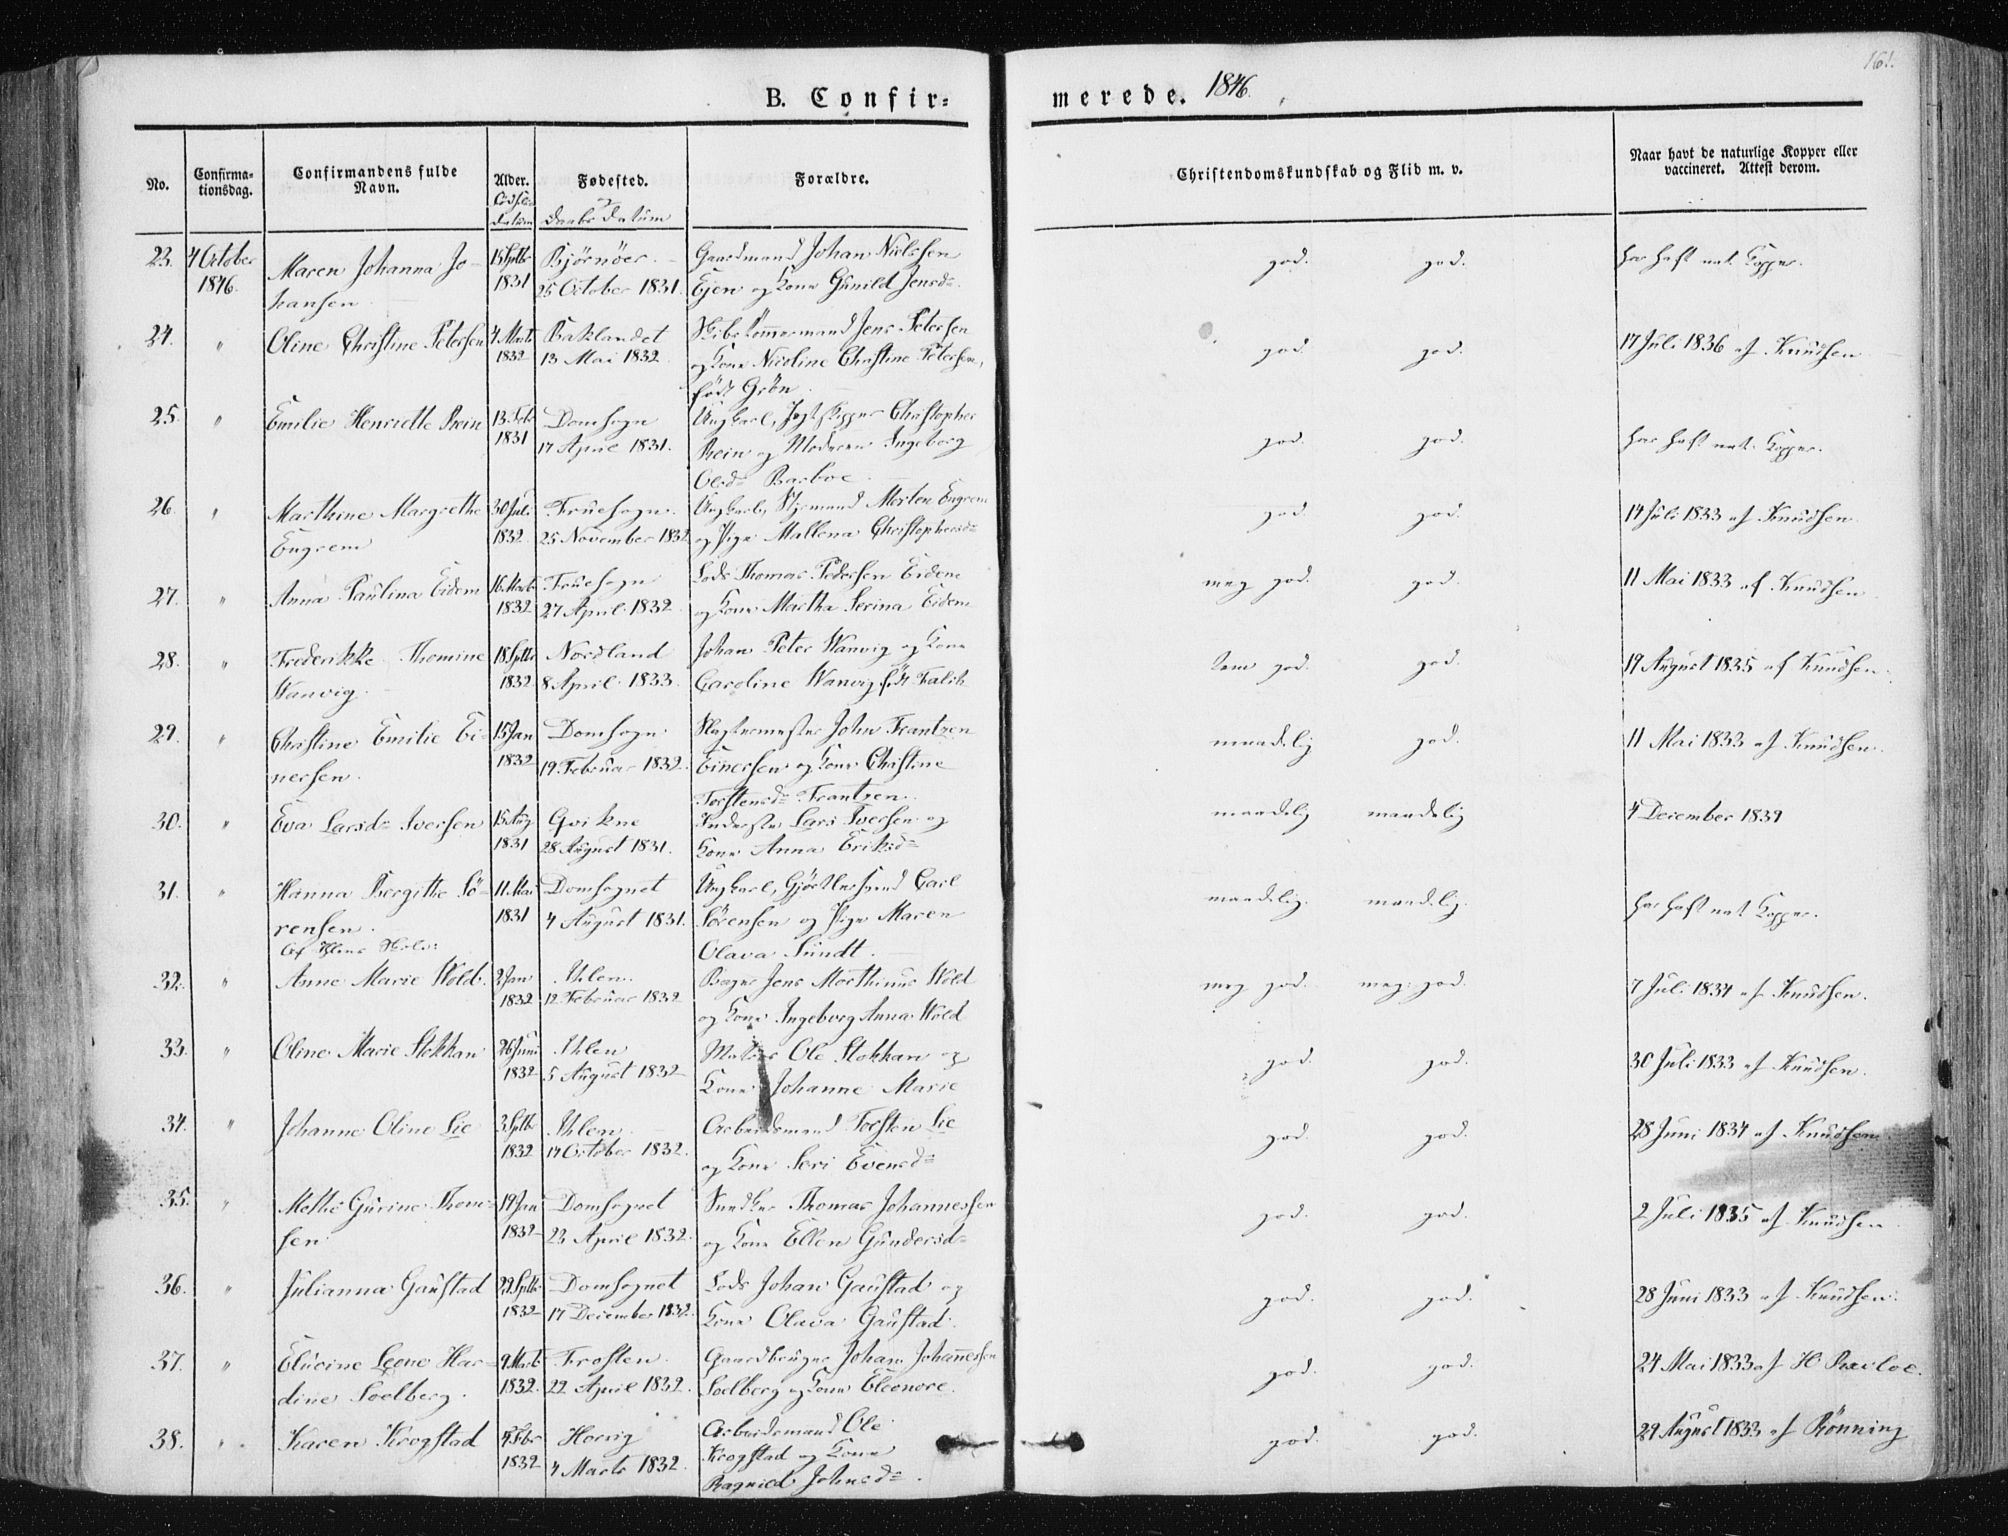 161.
B. Confir=
merede. 1846.
No.
Confirma=
tionsdag.
Confirmandens fulde
Navn.
Alder.
Födsels
Datum
Fødested.
Daabs Datum
Forældre.
Christendomskundskab og Flid m. v.
Naar havt de naturlige Kopper eller
vaccineret. Attest derom.
23. 4 October 1846. Maren Johanna Jo-
hansen
15 Septbr 1831
Björnöer.
25 October 1831.
Gaardmand Johan Nielssen
Ejen og Kone Gunild Jensd=
god. god.
har haft nat. Kopper.
24. " Oline Christine Petersen
4 Marts 1832
Baklandet
13 Mai 1832
Skibstømmermand Jens Petersen
og Kone Nicoline Christine Petersen,
født Grön.
god god.
17 Juli 1836 af Knudsen
25. " Emilie Henriette Rein
13 Febr 1831
Domsogn
17 April 1831.
Ungkarl, Jagtskipper Christopher
Rein og Moderen Ingeborg
Olsd= Barboe
god. god.
har haft nat. Kopper.
26. " Marthine Margrethe
Engrem
30 Juli 1832
Fruesogn.
25 November 1832
Ungkarl, Styrmand Morten Engrem
og Pige Mallena Christophersd=
god god.
14 Juli 1833 af Knudsen
27. " Anna Paulina Eidem
16 Marts 1832
Fruesogn
27 April 1832
Lods Thomas Pedersen Eidem
og Kone Martha Serina Eidem
meg god. god.
11 Mai 1833 af Knudsen
28. " Frederikke Thomine
Wanvig
18 Septbr 1832
Nordland
8 April 1833.
Johan Peter Wanvig og Kone
Caroline Wanvig født Falch
tem god. god.
19 August 1835 af Knudsen.
29. " Christine Emilie Ei-
nersen.
15 Jan 1832
Domsogn
19 Februar 1832.
Slagtermester John Frantzen
Einersen og Kone Christine
Torstensd= Frantzen.
maadelig god.
11 Mai 1833 af Knudsen.
30. " Eva Larsd= Iversen
15 Aug 1831
Qvikne
28 August 1831.
Inderste Lars Iversen og
Kone Anna Eriksd=
maadelig maadelig
4 December 1839
31. " Hanna Bergithe Sö-
rensen.
11. Mai 1831
Domsognet
4 August 1831.
Ungkarl, Gjørtlersvend Carl
Sörensen og Pige Maren
Olava Sundt.
maadelig. maadelig.
har haft nat Kopper.
Af Ihlens Skole:
32. " Anne Marie Wold.
2 Jan 1832
Ihlen.
12 Februar 1832
Bager Jens Marthinus Wold
og Kone Ingeborg Anna Wold
meg god. meg. god.
7 Juli 1834 af Knudsen.
33. " Oline Marie Stokkan
26 Juni 1832
Ihlen
5 August 1832
Matros Ole Stokkan og
Kone Johanne Marie
god. god.
30 Juli 1833 af Knudsen.
34. " Johanne Oline Lie
3 Septbr 1832
Ihlen.
14 October 1832.
Arbeidsmand Torsten Lie
og Kone Seri Evensd=
god. god.
28 Juni 1834 af Knudsen
35. " Methe Gurine Thom-
sen
19 Jan 1832
Domsognet
23 April 1832.
Snedker Thomas Johannessen
og Kone Ellen Gundersd=
god. god.
2 Juli 1835 af Knudsen
36. " Julianna Gaustad
29 Septbr 1832
Domsognet
17 December 1832.
Lods Johan Gaustad og
Kone Olava Gaustad.
god. god.
28 Juni 1833 af Knudsen.
37. " Elurine Leone Har-
dine Soelberg.
9 Marts 1832.
Frosten.
22 April 1832.
Gaardbruger Johan Johannessen
Soelberg og Kone Eleonore.
god. god.
24 Mai 1833 af H.
38. " Karen Krogstad
4 Febr 1832
Horrig
4 Marts 1832.
Arbeidsmand Ole
Krogstad og Kone
Ragnild Johnsd=.
god. god.
29 August 1833 af Rönning